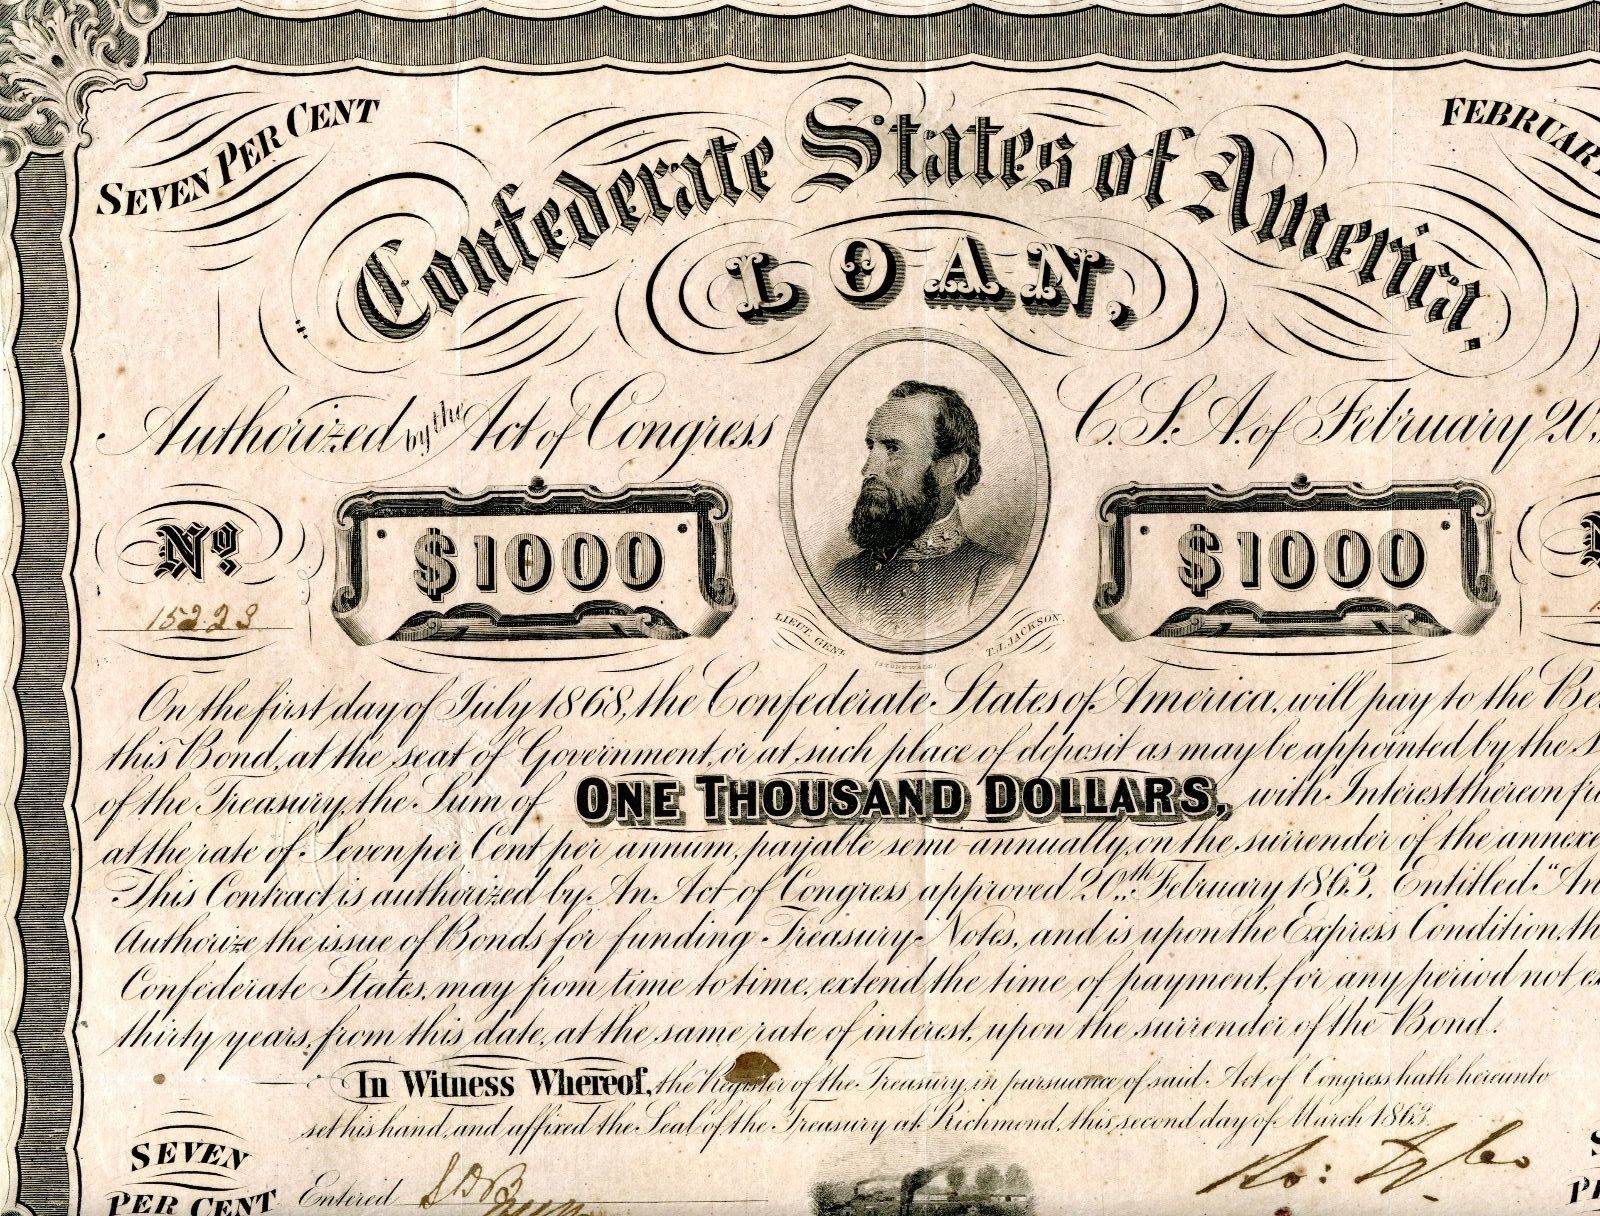 SEVEN PER CENT
FEBRUAR
Confederate States of America.
LOAN,
Authorized by the Act of Congress C.S.A. of February 20,
No.
15223
$1000
LIEUT. GENL. T.J. JACKSON.
(STONEWALL)
$1000
On the first day of July 1868, the Confederate States of America, will pay to the Be
this Bond, at the seat of Government, or at such place of deposit as may be appointed by the S
of the Treasury, the Sum of ONE THOUSAND DOLLARS, with Interest thereon fr
at the rate of Seven per Cent per annum, payable semi-annually, on the surrender of the annexe
This Contract is authorized by An Act of Congress approved 20th. February 1863. Entitled "An
Authorize the issue of Bonds for funding Treasury Notes, and is upon the Express Condition, th
Confederate States, may from time to time, extend the time of payment, for any period not ex
thirty years, from this date, at the same rate of interest, upon the surrender of the Bond.
In Witness Whereof, the Register of the Treasury, in pursuance of said Act of Congress hath hereunto
set his hand, and affixed the Seal of the Treasury at Richmond, this second day of March 1863.
SEVEN
PER CENT
Entered
Ro: Tyler